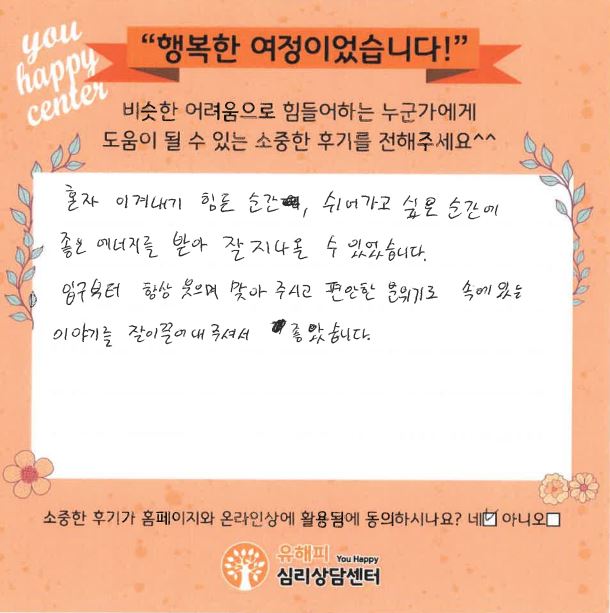 you
happy
center
“행복한 여정이었습니다!”
비슷한 어려움으로 힘들어하는 누군가에게
도움이 될 수 있는 소중한 후기를 전해주세요^^
혼자 이겨내기 힘든 순간, 쉬어가고 싶은 순간에
좋은 에너지를 받아 잘 지나올 수 있었습니다.
입구부터 항상 웃으며 맞아 주시고 편안한 분위기로 속에있는
이야기를 잘이끌어내주셔서 좋았습니다.
소중한 후기가 홈페이지와 온라인상에 활용됨에 동의하시나요? 네☑ 아니오☐
유해피 You Happy
심리상담센터